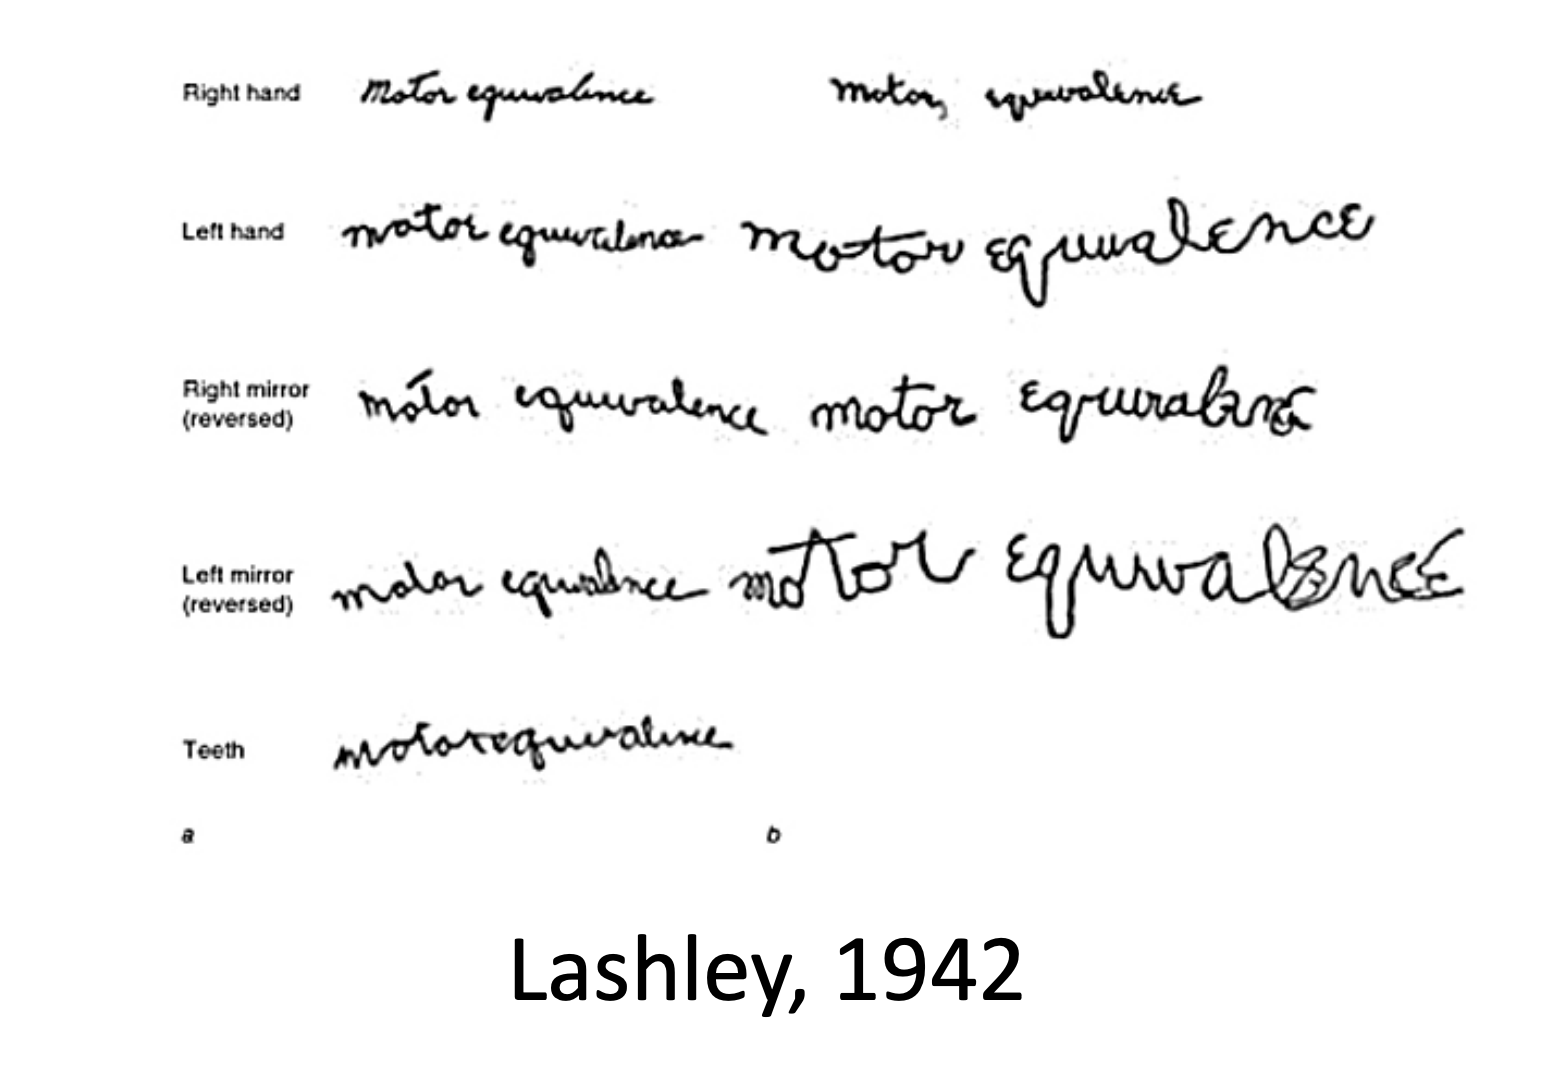 Right hand Motor equivalence motor, equivalence
Left hand motor equivalence motor equivalence
Right mirror
(reversed) motor equivalence motor equivalence
Left mirror
(reversed) motor equivalence motor equivalence
Teeth motor equivalence
a b
Lashley, 1942